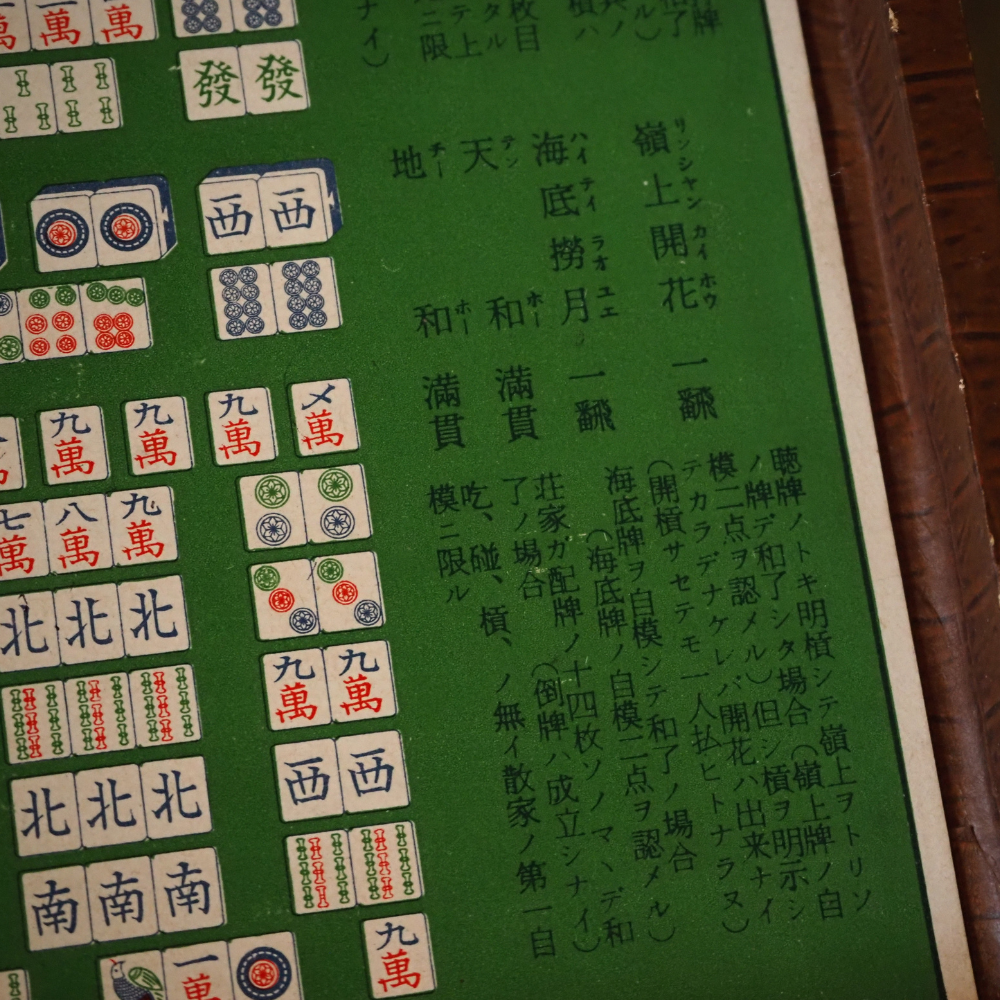 牌
和了
ル)
其ノ
槓ハ
枚目
タル
テ上
ニ限
ナイ)
嶺上開花
リンシャンカイホウ
一飜
聴牌ノトキ明槓シテ嶺上ヲトリソ
ノ牌デ和了シタ場合(嶺上牌ノ自
模二点ヲ認メル)但シ槓ヲ明示シ
テカラデナケレバ開花ハ出来ナイ
(開槓サセテモ一人払ヒトナラヌ)
海底撈月
ハイテイラオユエ
一飜
海底牌ヲ自模シテ和了ノ場合
(海底牌ノ自模二点ヲ認メル)
天和
テンホー
満貫
荘家ガ配牌ノ十四枚ソノマヽデ和
了ノ場合(倒牌ハ成立シナイ)
地和
チーホー
満貫
吃、碰、槓、ノ無イ散家ノ第一自
模ニ限ル
一萬 一萬
發 發
西 西
九萬 九萬 九萬 〤萬
七萬 八萬 九萬
北 北 北
九萬 九萬
西 西
北 北 北
南 南 南
九萬
一萬